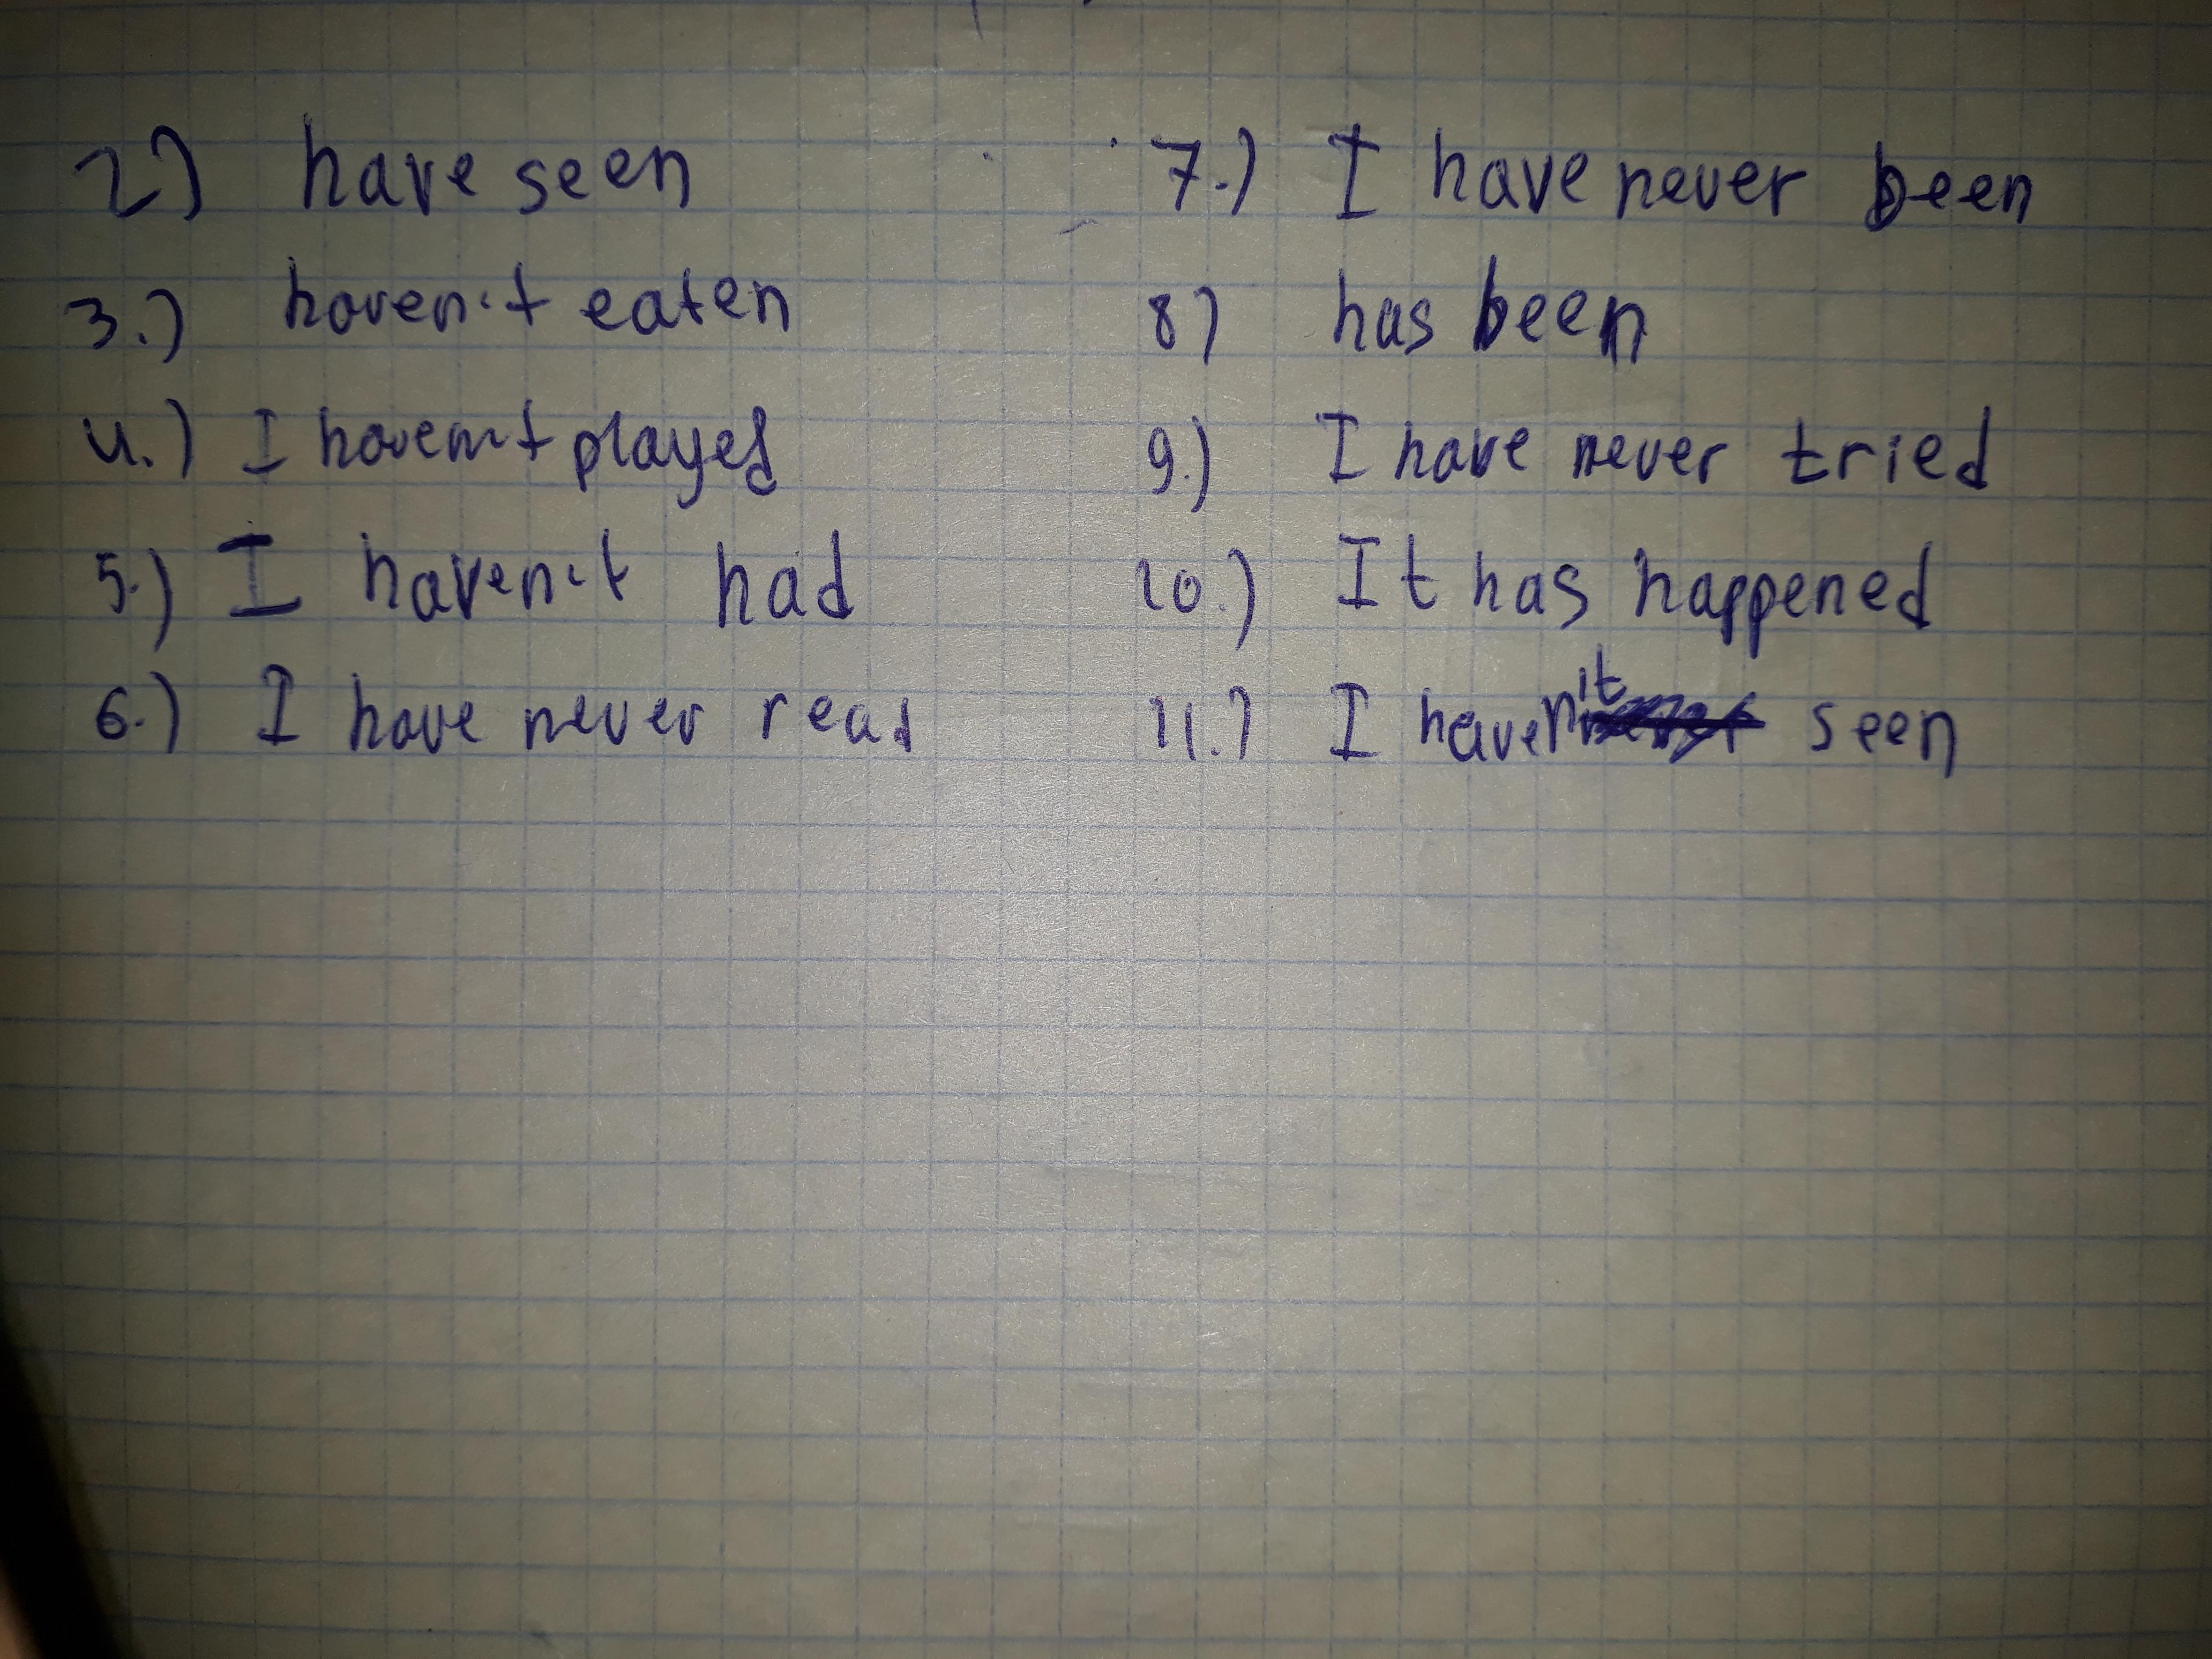 2) have seen
3.) haven't eaten
4.) I haven't played
5.) I haven't had
6.) I have never read
7.) I have never been
8) has been
9.) I have never tried
10.) It has happened
11.) I haven't seen